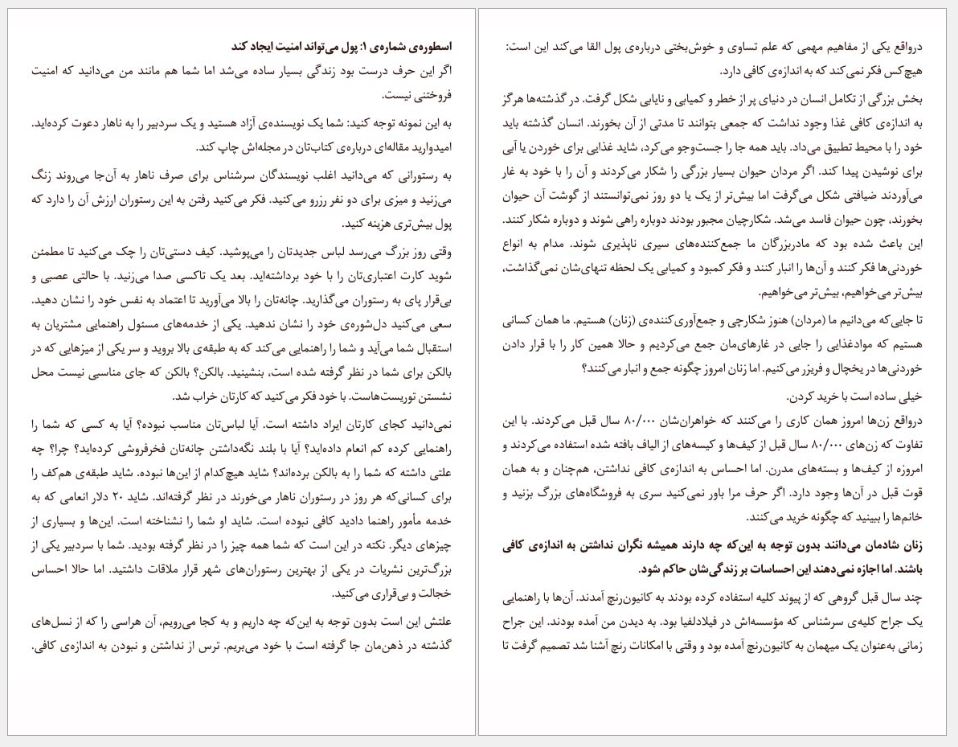 اسطوره‌ی شماره‌ی ۱: پول می‌تواند امنیت ایجاد کند
اگر این حرف درست بود زندگی بسیار ساده می‌شد اما شما هم مانند من می‌دانید که امنیت
فروختنی نیست.
به این نمونه توجه کنید: شما یک نویسنده‌ی آزاد هستید و یک سردبیر را به ناهار دعوت کرده‌اید.
امیدوارید مقاله‌ای درباره‌ی کتاب‌تان در مجله‌اش چاپ کند.
به رستورانی که می‌دانید اغلب نویسندگان سرشناس برای صرف ناهار به آن‌جا می‌روند زنگ
می‌زنید و میزی برای دو نفر رزرو می‌کنید. فکر می‌کنید رفتن به این رستوران ارزش آن را دارد که
پول بیش‌تری هزینه کنید.
وقتی روز بزرگ می‌رسد لباس جدیدتان را می‌پوشید. کیف دستی‌تان را چک می‌کنید تا مطمئن
شوید کارت اعتباری‌تان را با خود برداشته‌اید. بعد یک تاکسی صدا می‌زنید. با حالتی عصبی و
بی‌قرار پای به رستوران می‌گذارید. چانه‌تان را بالا می‌آورید تا اعتماد به نفس خود را نشان دهید.
سعی می‌کنید دل‌شوره‌ی خود را نشان ندهید. یکی از خدمه‌های مسئول راهنمایی مشتریان به
استقبال شما می‌آید و شما را راهنمایی می‌کند که به طبقه‌ی بالا بروید و سر یکی از میزهایی که در
بالکن برای شما در نظر گرفته شده است، بنشینید. بالکن؟ بالکن که جای مناسبی نیست محل
نشستن توریست‌هاست. با خود فکر می‌کنید که کارتان خراب شد.
نمی‌دانید کجای کارتان ایراد داشته است. آیا لباس‌تان مناسب نبوده؟ آیا به کسی که شما را
راهنمایی کرده کم انعام داده‌اید؟ آیا با بلند نگه‌داشتن چانه‌تان فخرفروشی کرده‌اید؟ چرا؟ چه
علتی داشته که شما را به بالکن برده‌اند؟ شاید هیچ‌کدام از این‌ها نبوده. شاید طبقه‌ی هم‌کف را
برای کسانی‌که هر روز در رستوران ناهار می‌خورند در نظر گرفته‌اند. شاید ۲۰ دلار انعامی که به
خدمه مأمور راهنما دادید کافی نبوده است. شاید او شما را نشناخته است. این‌ها و بسیاری از
چیزهای دیگر. نکته در این است که شما همه چیز را در نظر گرفته بودید. شما با سردبیر یکی از
بزرگ‌ترین نشریات در یکی از بهترین رستوران‌های شهر قرار ملاقات داشتید. اما حالا احساس
خجالت و بی‌قراری می‌کنید.
علتش این است بدون توجه به این‌که چه داریم و به کجا می‌رویم، آن هراسی را که از نسل‌های
گذشته در ذهن‌مان جا گرفته است با خود می‌بریم. ترس از نداشتن و نبودن به اندازه‌ی کافی.
درواقع یکی از مفاهیم مهمی که علم تساوی و خوش‌بختی درباره‌ی پول القا می‌کند این است:
هیچ‌کس فکر نمی‌کند که به اندازه‌ی کافی دارد.
بخش بزرگی از تکامل انسان در دنیای پر از خطر و کمیابی و نایابی شکل گرفت. در گذشته‌ها هرگز
به اندازه‌ی کافی غذا وجود نداشت که جمعی بتوانند تا مدتی از آن بخورند. انسان گذشته باید
خود را با محیط تطبیق می‌داد. باید همه جا را جست‌وجو می‌کرد، شاید غذایی برای خوردن یا آبی
برای نوشیدن پیدا کند. اگر مردان حیوان بسیار بزرگی را شکار می‌کردند و آن را با خود به غار
می‌آوردند ضیافتی شکل می‌گرفت اما بیش‌تر از یک یا دو روز نمی‌توانستند از گوشت آن حیوان
بخورند، چون حیوان فاسد می‌شد. شکارچیان مجبور بودند دوباره راهی شوند و دوباره شکار کنند.
این باعث شده بود که مادربزرگان ما جمع‌کننده‌های سیری ناپذیری شوند. مدام به انواع
خوردنی‌ها فکر کنند و آن‌ها را انبار کنند و فکر کمبود و کمیابی یک لحظه تنهای‌شان نمی‌گذاشت،
بیش‌تر می‌خواهیم، بیش‌تر می‌خواهیم.
تا جایی‌که می‌دانیم ما (مردان) هنوز شکارچی و جمع‌آوری‌کننده‌ی (زنان) هستیم. ما همان کسانی
هستیم که موادغذایی را جایی در غارهای‌مان جمع می‌کردیم و حالا همین کار را با قرار دادن
خوردنی‌ها در یخچال و فریزر می‌کنیم. اما زنان امروز چگونه جمع و انبار می‌کنند؟
خیلی ساده است با خرید کردن.
درواقع زن‌ها امروز همان کاری را می‌کنند که خواهران‌شان ۸۰/۰۰۰ سال قبل می‌کردند. با این
تفاوت که زن‌های ۸۰/۰۰۰ سال قبل از کیف‌ها و کیسه‌های از الیاف بافته شده استفاده می‌کردند و
امروزه از کیف‌ها و بسته‌های مدرن. اما احساس به اندازه‌ی کافی نداشتن، هم‌چنان و به همان
قوت قبل در آن‌ها وجود دارد. اگر حرف مرا باور نمی‌کنید سری به فروشگاه‌های بزرگ بزنید و
خانم‌ها را ببینید که چگونه خرید می‌کنند.
زنان شادمان می‌دانند بدون توجه به این‌که چه دارند همیشه نگران نداشتن به اندازه‌ی کافی
باشند. اما اجازه نمی‌دهند این احساسات بر زندگی‌شان حاکم شود.
چند سال قبل گروهی که از پیوند کلیه استفاده کرده بودند به کانیون‌رنچ آمدند. آن‌ها با راهنمایی
یک جراح کلیه‌ی سرشناس که مؤسسه‌اش در فیلادلفیا بود. به دیدن من آمده بودند. این جراح
زمانی به‌عنوان یک میهمان به کانیون‌رنچ آمده بود و وقتی با امکانات رنچ آشنا شد تصمیم گرفت تا